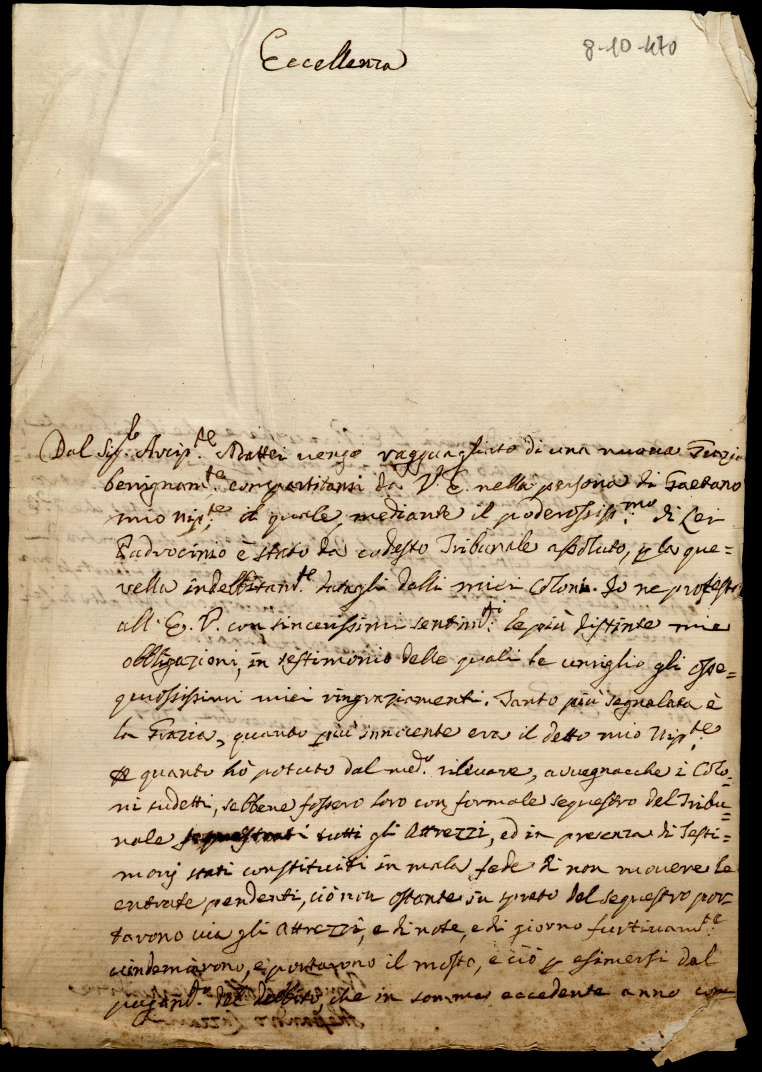 Eccellenza
8-10-470
Dal Sig.r Arcip.te Mattei vengo ragguagliato di una nuova Grazia
benignam.te compartitami da V. E. nella persona di Gaetano
mio Nip.te il quale, mediante il poderosiss.mo di Lei
Padrocinio è stato da codesto Tribunale assoluto, p la que=
rella indebitam.te datagli dalli miei Coloni. Io ne protesto
all' E. V. con sincerissimi sentim.ti le più distinte mie
obbligazioni, in testimonio delle quali le umiglio gli osse=
quiosissimi miei ringraziamenti. Tanto più segnalata è
la Grazia, quanto più innocente era il detto mio Nip.te
p quanto hò potuto dal med.o rilevare, avvegnacche i Colo=
ni sudetti, sebbene fossero loro con formale sequestro del Tribu=
nale tutti gli Attrezzi, ed in presenza di Testi=
monj stati constituiti in mala fede di non movere le
entrate pendenti, ciò non ostante in sprato del sequestro por=
tarono via gli Attrezzi, e di note, e di giorno furtivam.te
vindemiarono, e portarono il mosto, e ciò p esimersi dal
pagam.to del debbito, che in somma eccedente anno con=